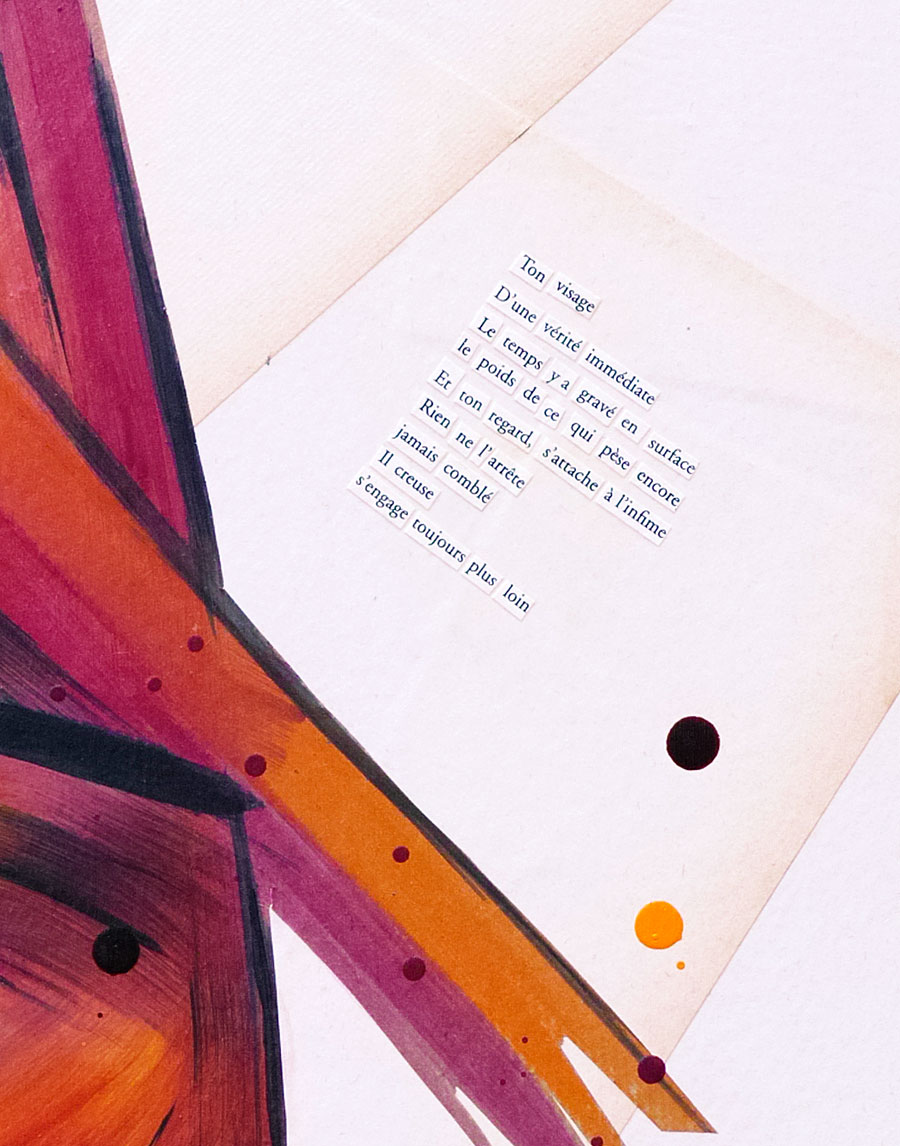 Ton visage
D'une vérité immédiate
Le temps y a gravé en surface
le poids de ce qui pèse encore
Et ton regard, s'attache à l'infime
Rien ne l'arrête
jamais comblé
Il creuse
s'engage toujours plus loin